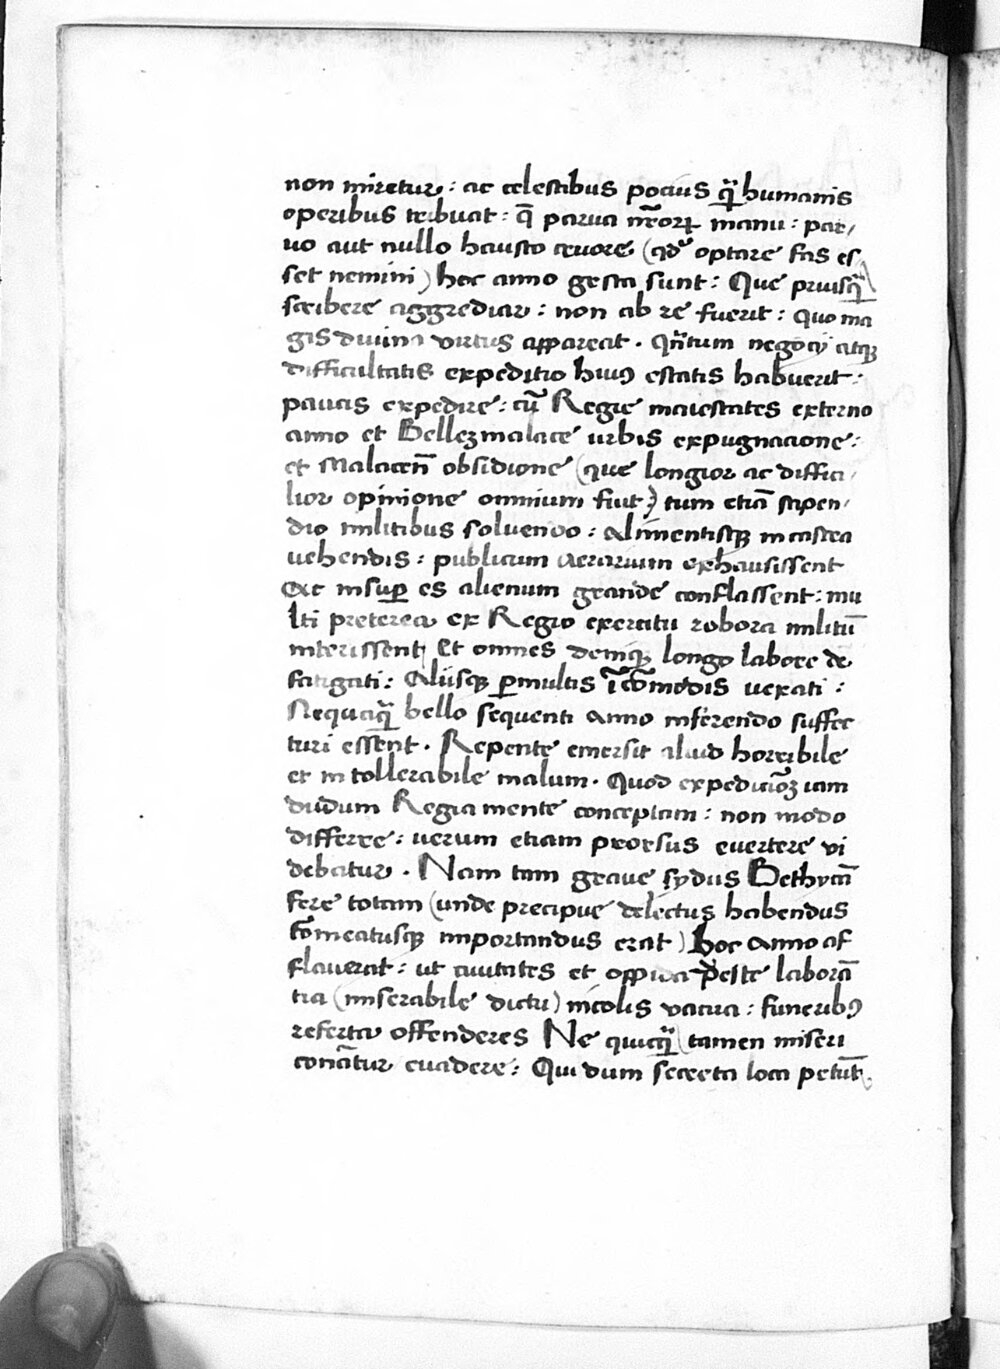 non miretur: ac celestibus pocius q̃ humanis
operibus tribuat: q̄ parua nr̃orꝝ manu: par/
uo aut nullo hausto cruore (qđ optare fas es
set nemini) hoc anno gesta sunt: Que priusq̃
scribere aggrediar: non ab re fuerit: quo ma
gis diuina virtus appareat. Qñtum negocij atqꝫ
difficultatis expeditio huiꝰ estatis habuerit:
paucis expedire: cū Regie maiestates externo
anno et Bellezmalace urbis expugnacione:
et Malaceñ obsidione (que longior ac diffici/
lior opinione omnium fuit) tum etiā stipen/
dio militibus soluendo: alimentisqꝫ in castra
uehendis: publicum aerarium exhausissent
Ac insuꝑ es alienum grande conflassent: mu
lti preterea ex Regio exercitu robora militū
interissent Et omnes deniqꝫ longo labore de
fatigati: Aliisqꝫ ꝑmultis ĩcōmodis uexati:
Nequaq̃ bello sequenti anno inferendo suffec
turi essent. Repente emersit aliud horribile
et intollerabile malum. Quod expedicionē iam
diudum Regia mente conceptam: non modo
differre: uerum etiam prorsus euertere vi
debatur. Nam tam graue sydus Bethycā
fere totam (unde precipue delectus habendus
fōmeatusqꝫ importandus erat) hoc anno af
flauerat: ut ciuitates et oppida peste laborā
tia (miserabile dictu) incolis vacua: funeribꝰ
referta offenderes Ne quicq̃ tamen miseri
conātur euadere: Qui dum secreta loca petūt